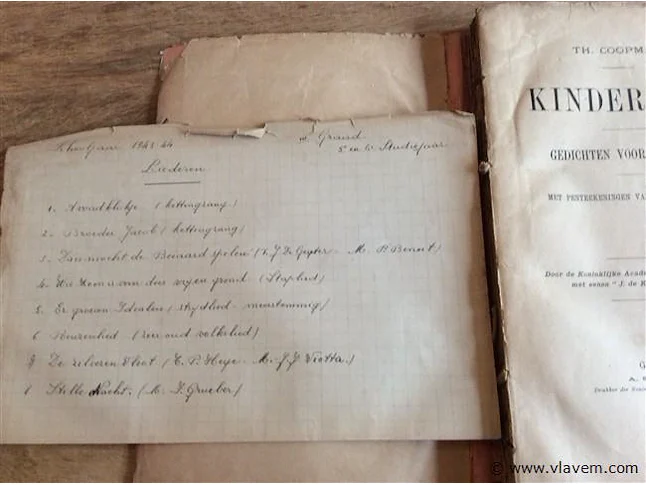 1943/44
3e Graad
5e en 6e Studiejaar
Liederen
1. Avondklokje (kettingzang)
2. Broeder Jacob (kettingzang)
3. Dan mocht de Beiaard spelen (T. J. De Geyter - M. P. Benoit)
4. Wij komen van den vrijen grond (Staplied)
5. Er groeien Idealen (strijdlied - meerstemmig)
6. Boerenlied (zeer oud volkslied)
7. De zilveren Vloot (T. P. Heije - M. J. J. Viotta.)
8. Stille Nacht. (M. F. Grueber)
TH. COOPM
KINDER
GEDICHTEN VOOR
MET PENTEEKENINGEN VA
Door de Koninklijke Acade
met senaa "J. de K
© www.vlavem.com